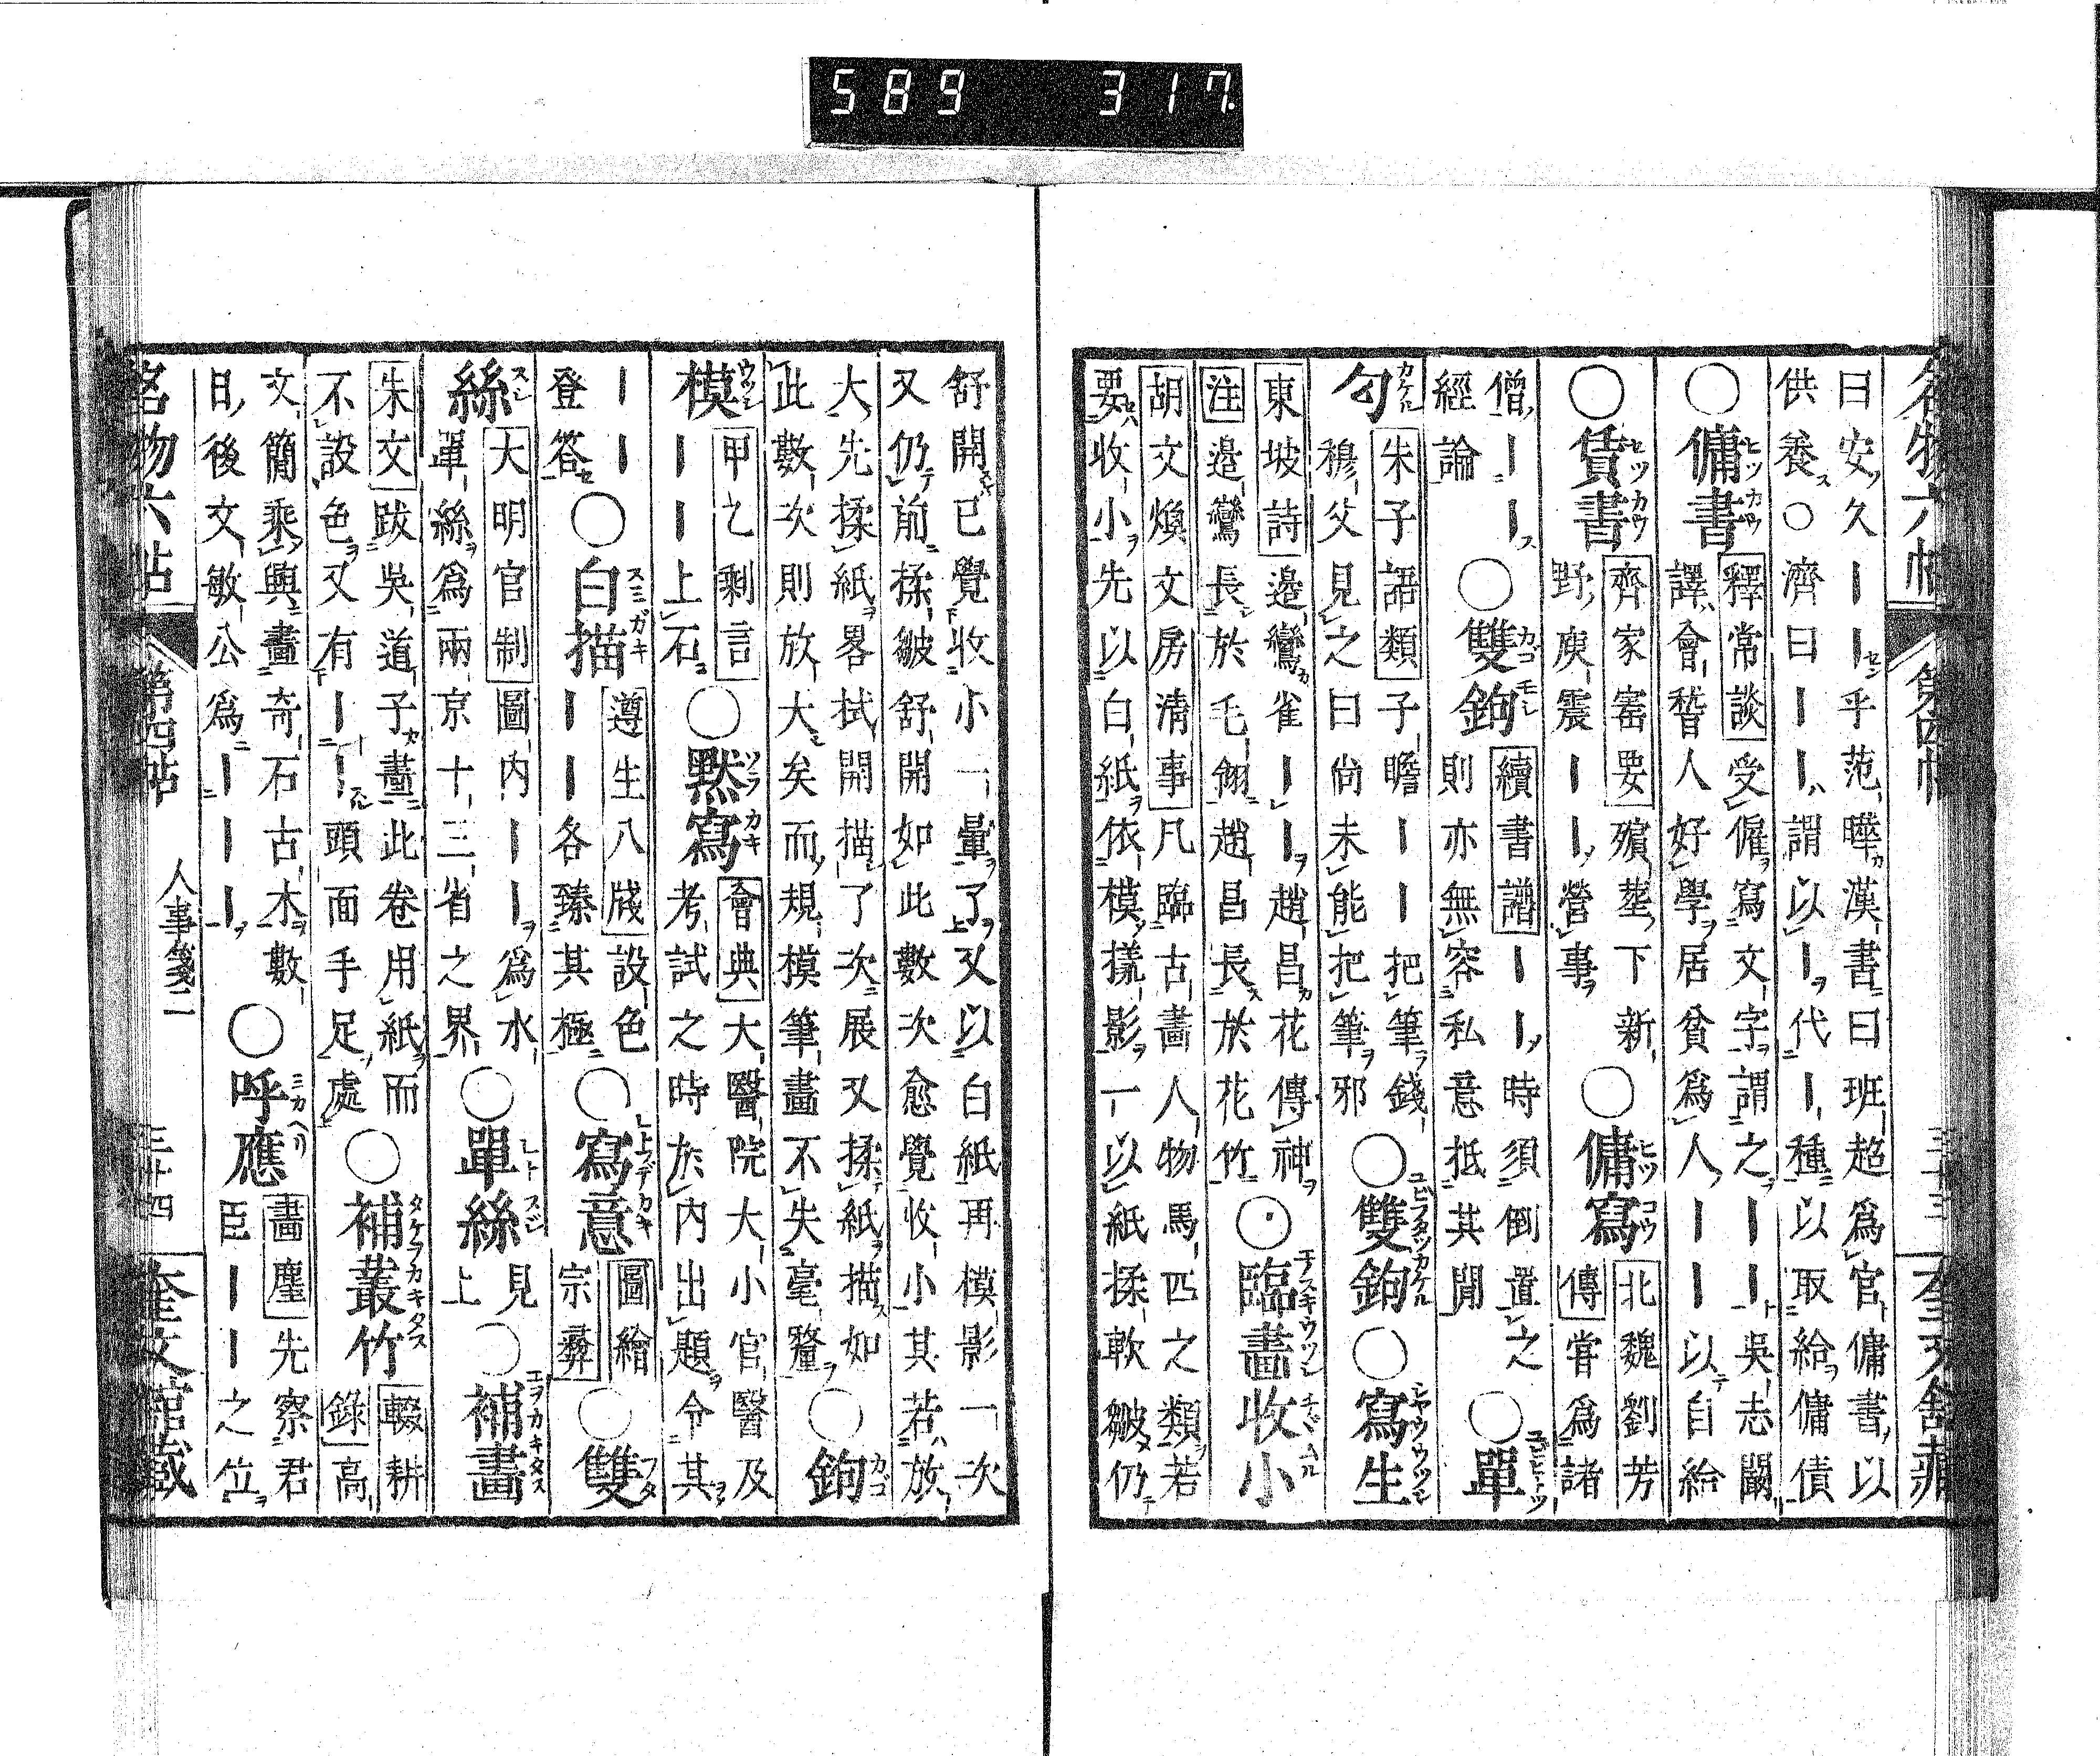 589 317
名物六帖 第四帖 三十三 奎文館藏
曰安久｜｜乎范曄漢書曰班超爲官傭書以
供養○濟曰｜｜謂以｜代｜種以取給傭債
○傭書 釋常談 受僱寫文字謂之｜｜吳志闞
譯會稽人好學居貧爲人｜｜以自給
○賃書 齊家寶要 殯塟下新
野庾震｜｜營事
○傭寫 北魏劉芳
傳 嘗爲諸
僧｜｜
經論
○雙鉤 續書譜 ｜｜時須倒置之
則亦無容私意抵其閒
○單
勾 朱子語類 子瞻｜｜把筆錢
穆父見之曰尙未能把筆邪
○雙鉤
○寫生
東坡詩 邉鸞雀｜｜趙昌花傳神
注 邉鸞長於毛翎趙昌長於花竹
○臨畵收小
胡文煥文房淸事 凡臨古畵人物馬匹之類若
要收小先以白紙依模㨾影一以紙揉軟皺仍
舒開已覺收小一暈了又以白紙再模影一次
又仍前揉皺舒開如此數次愈覺收小其若放
大先揉紙畧拭開描了次展又揉紙描如
此數次則放大矣而規模筆畫不失毫釐
○鉤
模 甲乙剩言
｜｜上石
○默寫 會典 大醫院大小官醫及
考試之時於內出題令其
｜｜
登答
○白描 遵生八牋 設色
｜｜各臻其極
○寫意 圖繪
宗彜
○雙
絲 大明官制 圖內｜｜爲水
單絲爲兩京十三省之界
○單絲 見
上
○補畵
朱文 跋吳道子畵此卷用紙而
不設色又有｜｜頭面手足處
○補叢竹 輟耕
錄 高
文簡乘興畵奇石古木數
日後文敏公爲｜｜｜
○呼應 畵麈 先察君
臣｜｜之位
名物六帖 第四帖 人事箋二 三十四 奎文館藏